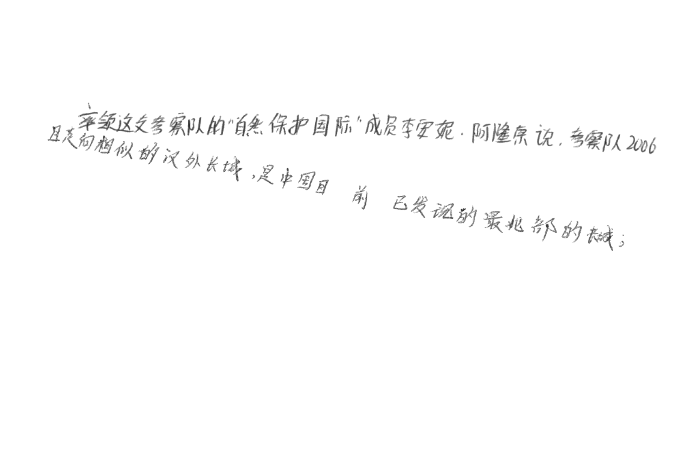 率领这支考察队的“自然保护国际”成员李安妮·阿隆索说,考察队2006
且走向相似的汉外长城,是中国目前已发现的最北部的长城;